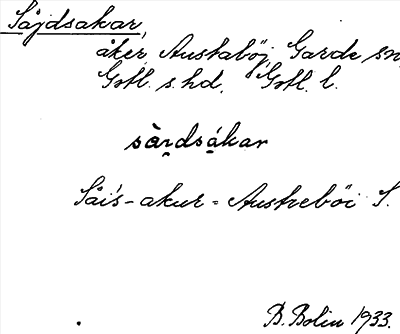 Såjdsakar,
åker, Austaböj, Garde sn,
Gotl. s. hd. Gotl. l.
sàrdsákar
Såis-akur = Austreböi S.
B. Bolin 1933.